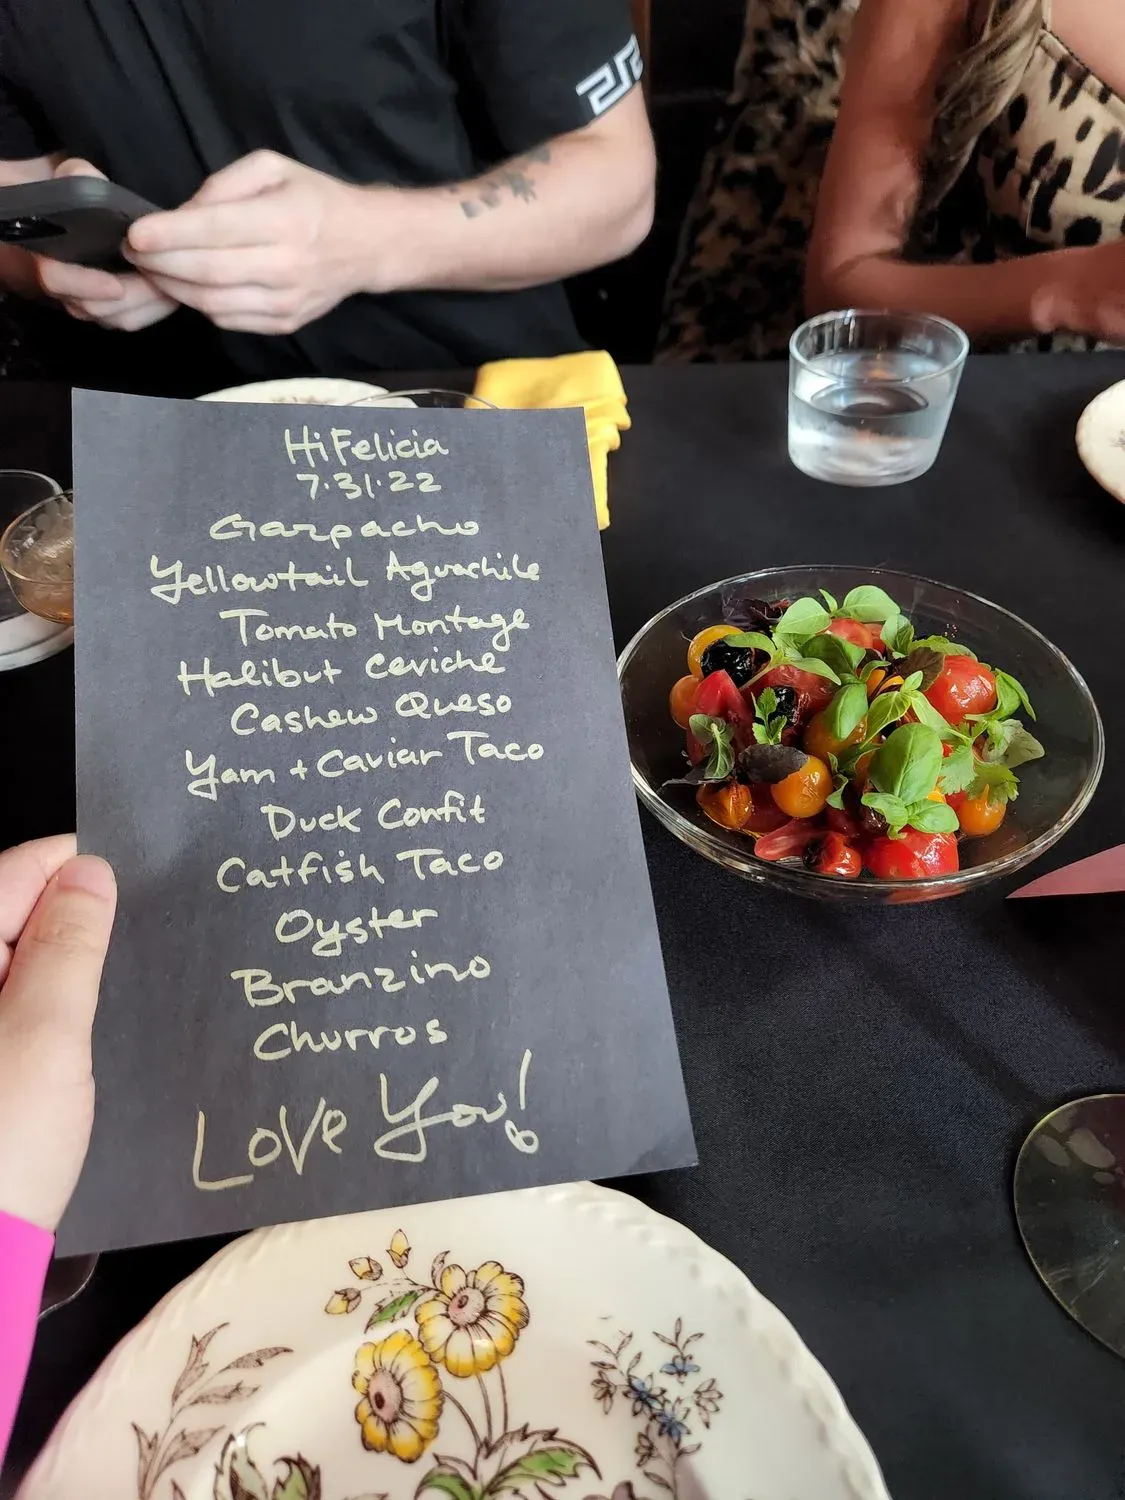 Hi Felicia
7.31.22
Gazpacho
Yellowtail Aguachile
Tomato Montage
Halibut Ceviche
Cashew Queso
Yam + Caviar Taco
Duck Confit
Catfish Taco
Oyster
Branzino
Churros
Love You!